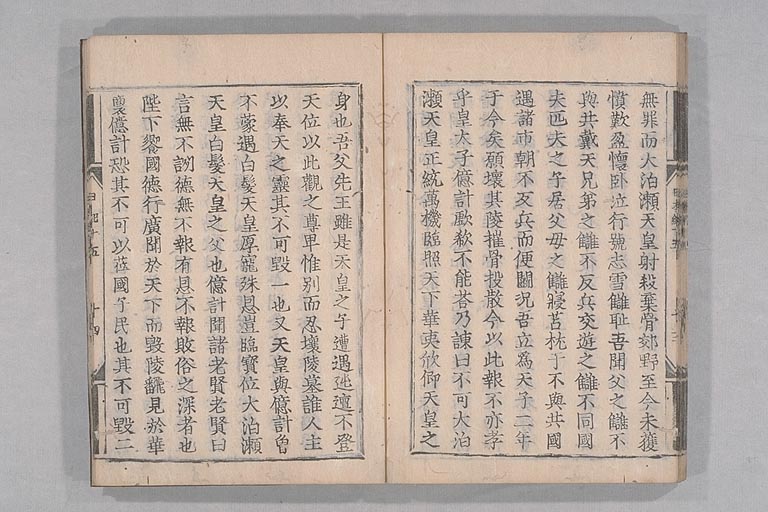 無罪而大泊瀬天皇射殺棄骨郊野至今未獲
憤歎盈懷臥泣行號志雪讎耻吾聞父之讎不
與共戴天兄弟之讎不反兵交遊之讎不同國
夫匹夫之子居父母之讎寢苫枕干不與共國
遇諸市朝不反兵而便鬪況吾立為天子二年
于今矣願壞其陵摧骨投散今以此報不亦孝
乎皇太子億計歔欷不能荅乃諫曰不可大泊
瀬天皇正統萬機臨照天下華夷欣仰天皇之
身也吾父先王雖是天皇之子遭遇迍邅不登
天位以此觀之尊卑惟別而忍壞陵墓誰人主
以奉天之靈其不可毀一也又天皇與億計曾
不蒙遇白髮天皇厚寵殊恩豈臨寶位大泊瀬
天皇白髮天皇之父也億計聞諸老賢老賢曰
言無不詶德無不報有恩不報敗俗之深者也
陛下饗國德行廣聞於天下而毀陵飜見於華
裔億計恐其不可以莅國子民也其不可毀二